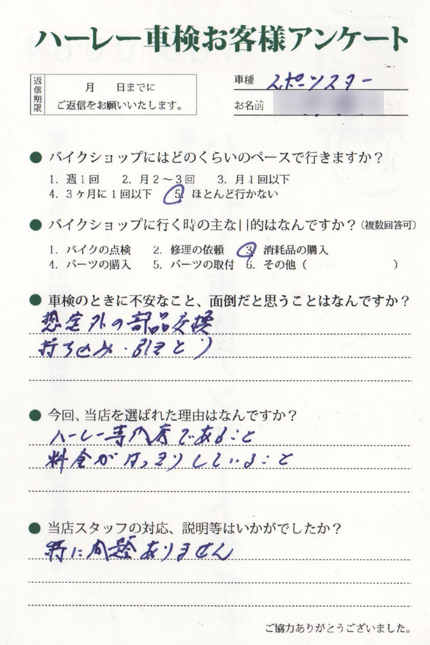 ハーレー車検お客様アンケート
返信期限
月　　日までに
ご返信をお願いいたします。
車種 スポーツスター
お名前
● バイクショップにはどのくらいのペースで行きますか？
1. 週1回　2. 月2〜3回　3. 月1回以下
4. 3ヶ月に1回以下　5. ほとんど行かない
● バイクショップに行く時の主な目的はなんですか？（複数回答可）
1. バイクの点検　2. 修理の依頼　3. 消耗品の購入
4. パーツの購入　5. パーツの取付　6. その他（　　　　　　）
● 車検のときに不安なこと、面倒だと思うことはなんですか？
想定外の部品交換
持ち込み・引きとり
● 今回、当店を選ばれた理由はなんですか？
ハーレー専門店であること
料金がはっきりしていること
● 当店スタッフの対応、説明等はいかがでしたか？
特に問題ありません
ご協力ありがとうございました。